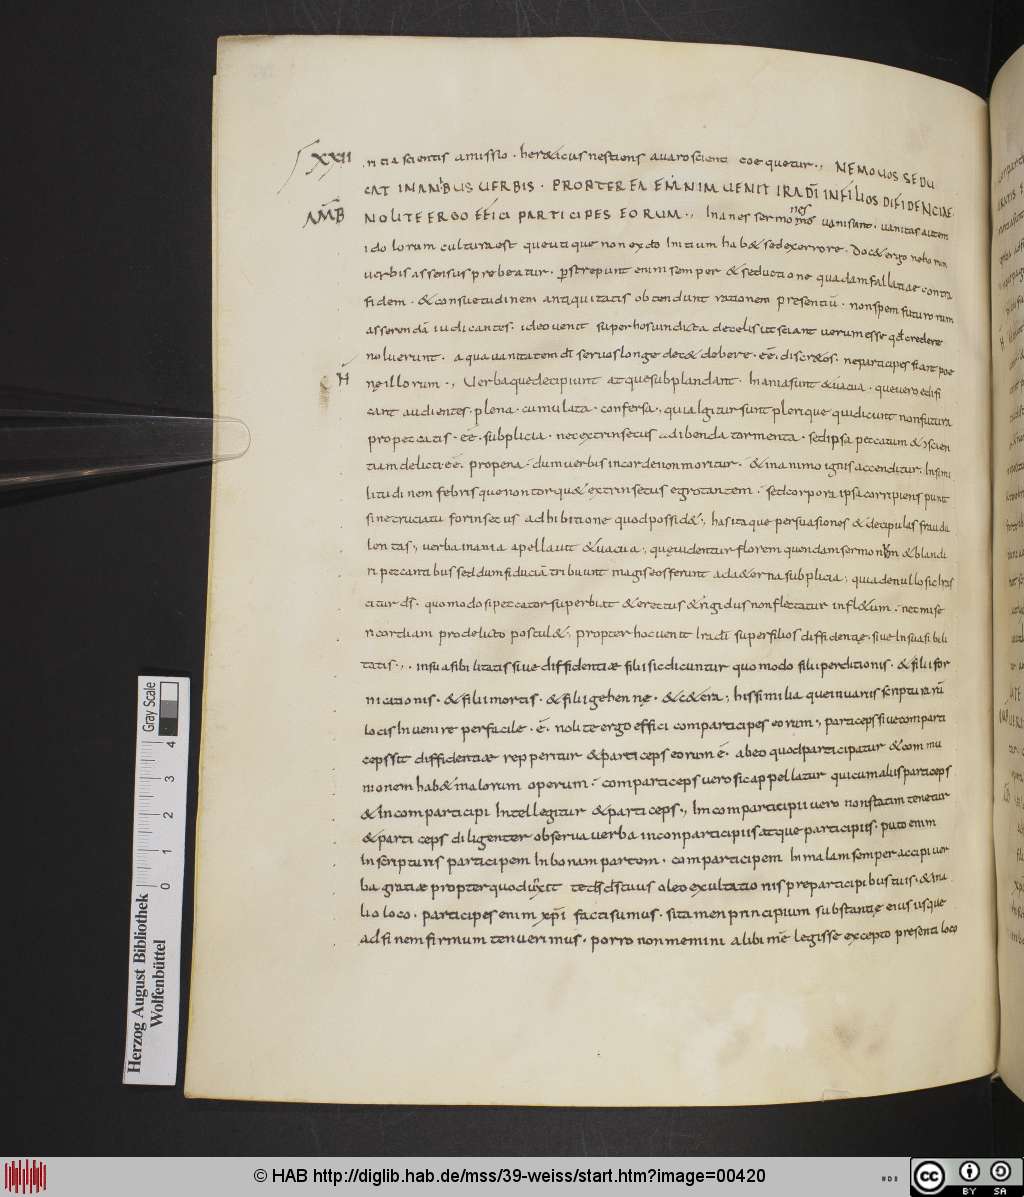 XXII ritia scientis amissio · hereticus nestionis avaro scienti coequetur ·, NEMO UOS SEDU
CAT INANIBUS UERBIS · PROPTEREA ENIM UENIT IRA DI IN FILIOS DIFIDENCIAE·
AMB NOLITE ERGO EFFICI PARTICIPES EORUM ·, Inanes sermones vani sunt · vanitas autem
idolorum cultura est que utique non ex do Initium hab& sed ex errore · Doc& ergo ne horum
verbis assensus prebeatur · pstrepunt enim semper & seductione quadam fallatiae contra
fidem · & consuetudinem antiquitatis obtendunt rationem presentiū · non spem futurorum
asserendā iudicantes · ideo venit super hos vindicta de celis ut sciant verum esse qd credere
noluerunt · a qua vanitatem di servos longe dec& debere · ēē · discr&os · ne participes fiant poe
H nę illorum ·, Verba que decipiunt atque subplandant · Inania sunt & vacua · que vero edifi
cant audientes · plena · cumulata · confersa · qui a igitur sunt plerique qui dicunt non futura
pro peccatis · ēē · subplicia · nec extrinsecus adibenda tormenta · sed ipsā peccatum & scien
tiam delicti ēē · pro pena · dum verbis in corde non moritur · & in animo ignis accenditur · In simi
litudinem febris que non torqu& extrinsecus egrotantem · sed corpora ipsa corripiens punit
sine cruciatu forinsecus adhibitione quod possid& ·, has itaque persuasiones & decipulas frauda
lentas ·, verba inania apellavit & vacua ·, que videntur florem quendam sermonum & blandi
ri peccantibus sed dum fiduciā tribuunt magis eos ferunt ad a&erna subplicia ·, quia de nullo sic Iras
citur ds · quomodo si peccator superbiat & erectus & rigidus non flectatur in fl&um · nec mise
ricordiam pro delicto postul& ·, propter hoc venit Ira di super filios diffidentiae · sive Insuasibili
tatis ·, · insuasibilitatis sive diffidentiæ filii sic dicuntur quomodo filii perditionis · & filii for
nicationis · & filii mortis · & filii gehennę · & c&era ·, his similia que in variis scripturarū
locis Invenire perfacile · ē · nolite ergo effici comparticipes eorum ·, particeps sive comparti
ceps sit diffidentiæ repperitur & particeps eorum ē · ab eo quod participatur & commu
nionem hab& in alorum operum · comparticeps vero sic appellatur qui cum aliis particeps
& In comparticipi Intellegitur & particeps ·, Im comparticipii vero non statim tenetur
& particeps diligenter observa verba in conparticipiis atque participiis · puto enim
In scripturis participem In bonam partem · comparticipem In malam semper accipi ver
ba gratiæ propter quod unxit te ds ds tuus oleo exultationis pre participibus tuis · & in a
lio loco · participes enim xpi facti sumus · si tamen principium substantię eius usque
ad finem firmum tenuerimus · porro non memini alibi mē legisse excepto presenti loco
Gray Scale
0 1 2 3 4
Herzog August Bibliothek
Wolfenbüttel
© HAB http://diglib.hab.de/mss/39-weiss/start.htm?image=00420
cc BY SA